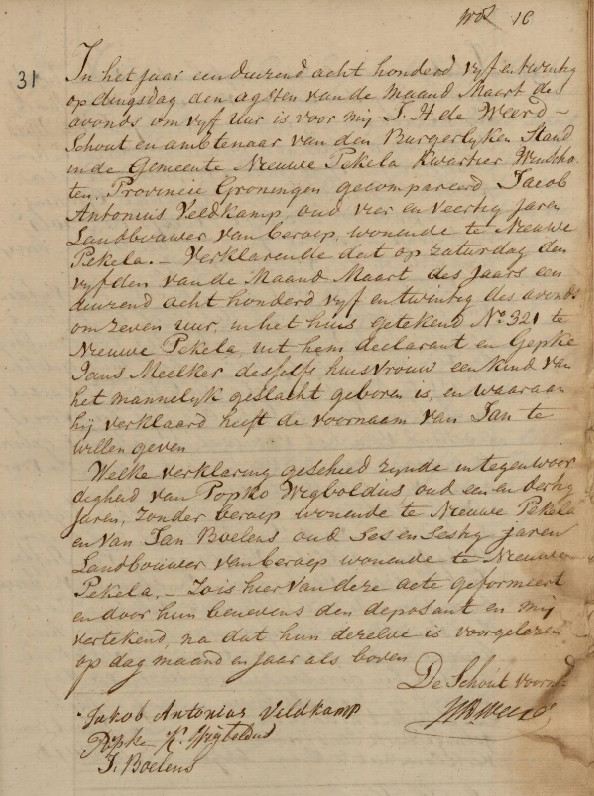 16
31
In het jaar een duizend acht honderd vyf en twintig
op dingsdag den agsten van de maand Maart des
avonds om vyf uur is voor mij J. H. de Weerd –
Schout en ambtenaar van den Burgerlyken Stand
in de Gemeente Nieuwe Pekela Kwartier Winscho
ten, Provincie Groningen gecompareerd, Jacob
Antonius Veldkamp, oud vier en veertig jaren
Landbouwer van beroep, wonende te Nieuwe
Pekela. – Verklarende dat op zaturdag den
vyfden van de Maand Maart des jaars een
duizend acht honderd vyf en twintig des avonds
om zeven uur, in het huis getekend No. 321 te
Nieuwe Pekela, uit hem declarant en Gepke
Jans Meelker desselfs huisvrouw een kind van
het mannelyk geslacht geboren is, en waaraan
hij verklaard heeft de voornaam van Jan te
willen geven
Welke verklaring geschied zynde in tegenwoor
digheid van Popko Wigboldus oud een en dertig
Jaren, zonder beroep wonende te Nieuwe Pekela
en van Jan Boelens oud Ses en Sestig jaren
Landbouwer van beroep wonende te Nieuwe
Pekela. – Zo is hier van deze acte geformeert
en door hun benevens den deposant en mij
vertekend, na dat hun dezelve is voorgelezen
op dag maand en jaar als boven
De Schout voornd.
Jakob Antonius Veldkamp
Popko K. Wigboldus
J. Boelens